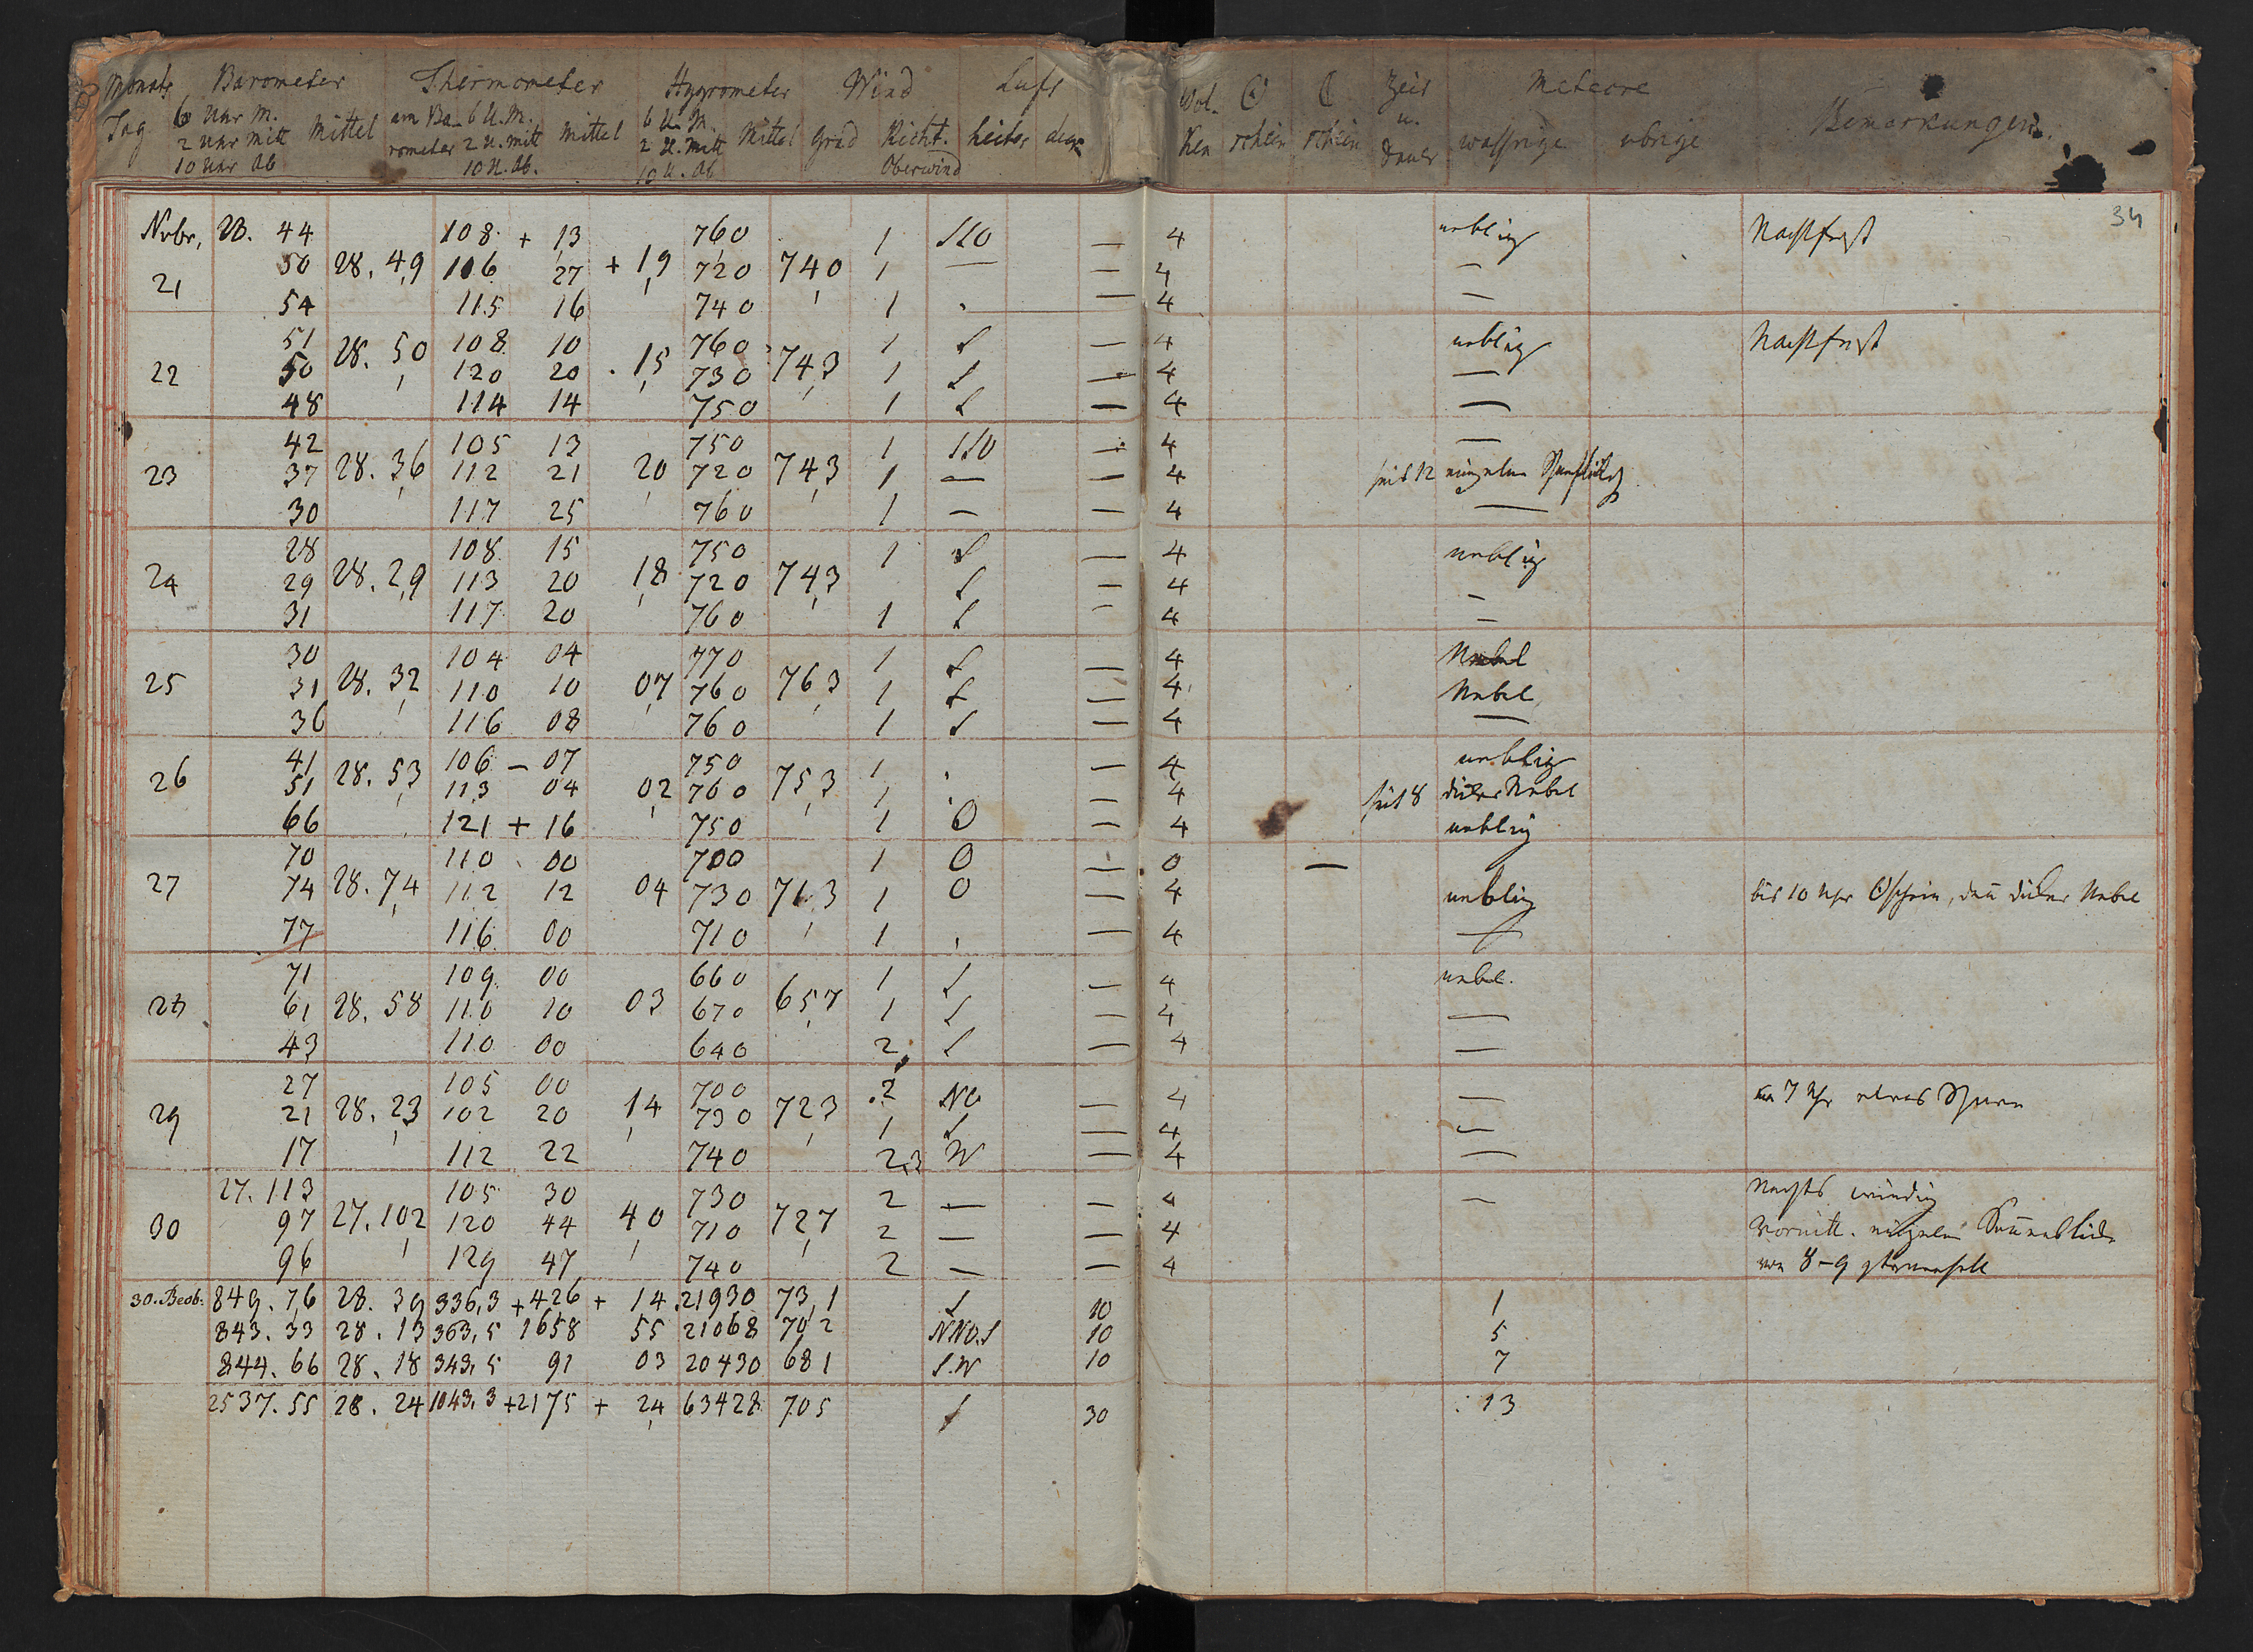 Monats Barometer Thermometer Hygrometer Wind Luft Wol- ☉ ☾ Zeit Meteore
Tag 6 Uhr M. Mittel am Ba- 6 U. M. Mittel 6 U. M. Mittel Grad Richt. heiter ken schein schein u. wassrige ubrige Bemerkungen.
2 Uhr Mitt rometer 2 U. Mitt 2 U. Mitt Dauer
10 Uhr Ab 10 U. Ab. 10 U. Ab Oberwind
34
Nvbr, 28. 44 108 + 13 760 1 SSO — 4 neblig Nachtfrost
21 50 28. 49 116 27 + 19 720 740 1 — — 4 —
54 115 16 740 1 . — 4 —
51 108 10 760 1 S — 4 neblig Nachtfrost
22 50 28. 50 120 20 . 15 730 743 1 S — 4 —
48 114 14 750 1 S — 4 —
42 105 13 750 1 SSO — 4 —
23 37 28. 36 112 21 20 720 743 1 — — 4 seit 12 einzelne
30 117 25 760 1 — — 4 —
28 108 15 750 1 S — 4 neblig
24 29 28. 29 113 20 18 720 743 S — 4 —
31 117 20 760 1 S — 4 —
30 104 04 770 1 S — 4 Nebel
25 31 28. 32 110 10 07 760 763 1 S — 4 Nebel
36 116 08 760 1 S — 4 —
41 106 — 07 750 1 . — 4 neblig
26 51 28. 53 113 04 02 760 753 1 . — 4 seit 8 dicker Nebel
66 121 + 16 750 1 O — 4 neblig
70 110 00 700 1 O — 0 —
27 74 28. 74 112 12 04 730 713 1 O — 4 neblig bis 10 Uhr ☉schein, dan̄ dicker Nebel
77 116 00 710 1 . — 4 —
71 109 00 660 1 S — 4 nebel.
28 61 28. 58 110 10 03 670 657 1 S — 4 —
43 110 00 640 2 S — 4 —
27 105 00 700 2 NO 4 — 7 Uhr etwas
29 21 28. 23 102 20 14 730 723 1 S — 4 —
17 112 22 740 2,3 W — 4 —
27. 113 105 30 730 2 — — 4 — Nachts windig
30 97 27. 102 120 44 40 710 727 2 — — 4 Vormitt. einzelne Son̄enblicke
96 129 47 740 2 — — 4 von 8-9 sternenhell
30. Beob. 849. 76 28. 39 336,3 + 426 + 14. 21930 73,1 S 10 1
843. 33 28. 13 363,5 1658 55 21068 702 NNO.S 10 5
844. 66 28. 18 343,5 91 03 20430 681 S.W 10 7
2537. 55 28. 24 1043,3 + 2175 + 24 63428 705 S 30 13